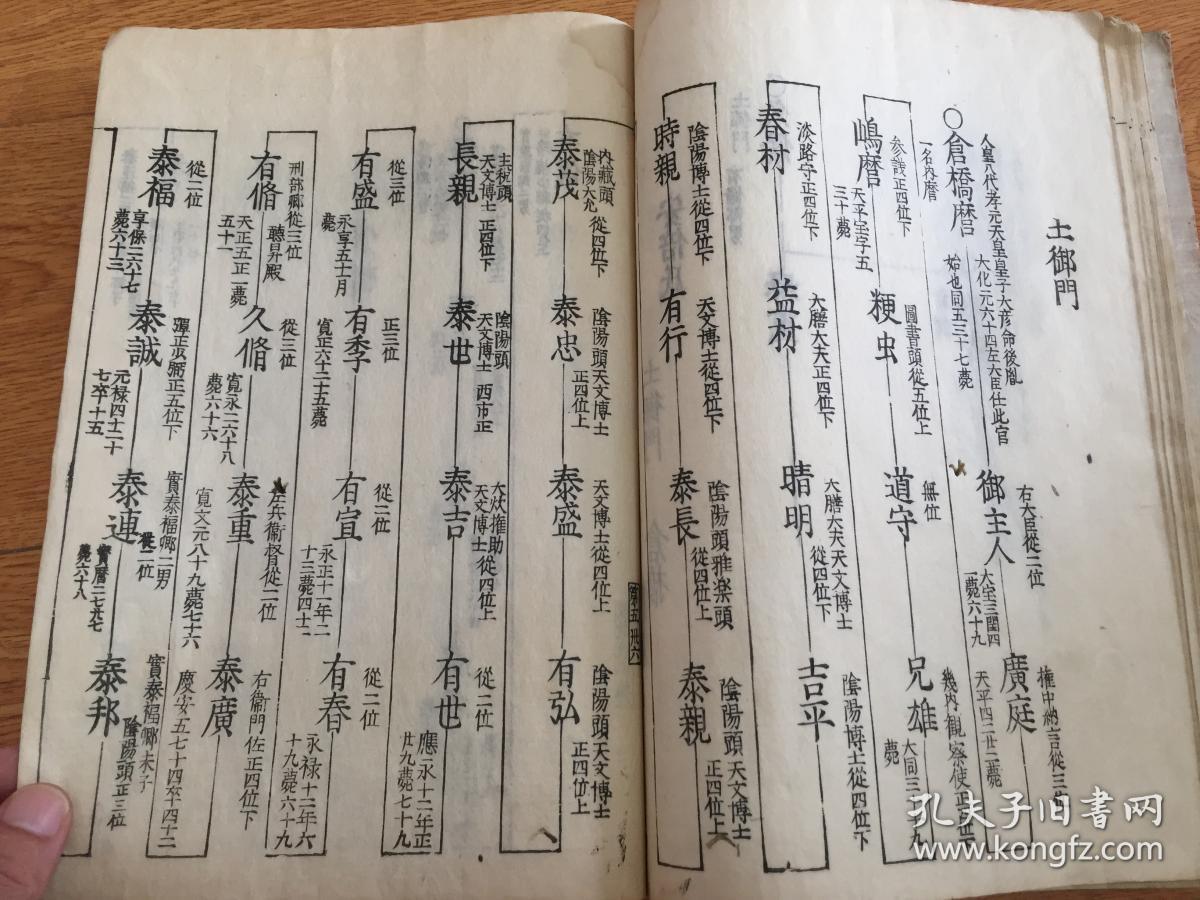 土御門
人皇八代孝元天皇皇子大彦命後胤
〇倉橋麿
大化元六十四左大臣仕此官
始也同五三十七薨
右大臣從二位
御主人
大宝三閏四
一薨六十九
權中納言從三位
廣庭
天平四二廿二薨
一名内麿
参議正四位下
嶋麿
天平宝字五
三十薨
圖書頭從五位上
粳虫
無位
道守
畿内観察使正四位下
兄雄
大同三
薨
淡路守正四位下
春材
大膳大夫正四位下
益材
大膳大夫天文博士
晴明
從四位下
陰陽博士從四位下
吉平
陰陽博士從四位下
時親
天文博士從四位下
有行
陰陽頭雅楽頭
泰長
從四位上
陰陽頭天文博士
泰親
正四位上
内藏頭
陰陽大允
泰茂
從四位下
陰陽頭天文博士
泰忠
正四位上
天文博士從四位上
泰盛
陰陽頭天文博士
有弘
正四位上
主税頭
天文博士
長親
正四位下
陰陽頭
天文博士
泰世
西市正
大炊權助
天文博士
泰吉
從四位上
從二位
有世
應永十二年正
廿九薨七十九
從三位
有盛
永享五十一月
薨
正三位
有季
寛正六十二十五薨
從二位
有宣
永正十一年二
十三薨四十二
從二位
有春
永禄十二年六
十九薨六十九
刑部卿從三位
聴昇殿
有脩
天正五正二薨
五十一
從三位
久脩
寛永二六十八
薨六十六
左兵衞督從二位
泰重
寛文元八十九薨七十六
右衞門佐正四位下
泰廣
慶安五七十四卒四十二
從二位
泰福
享保二六十七
薨六十三
彈正少弼正五位下
泰誠
元禄四十二十
七卒十五
實泰福卿二男
從二位
泰連
寳暦二七廿七
薨六十八
實泰福卿末子
泰邦
陰陽頭正三位
第五 卅六
孔夫子旧书网
www.kongfz.com